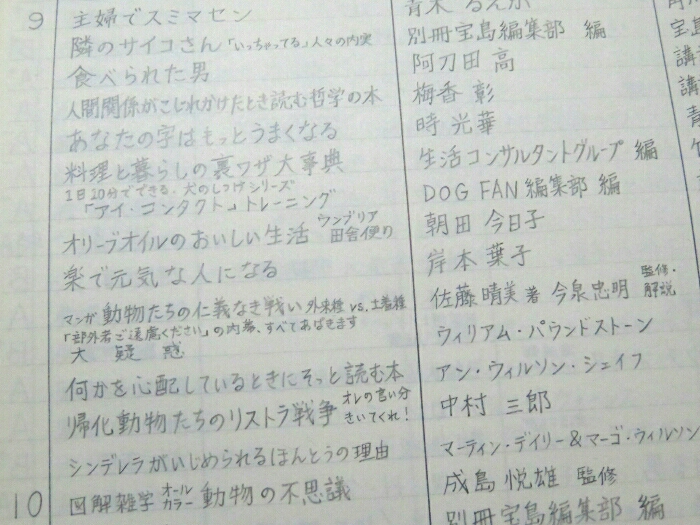 9 主婦でスミマセン 青木 るえか
隣のサイコさん 「いっちゃってる」人々の内実 別冊宝島編集部 編
食べられた男 阿刀田 高
人間関係がこじれかけたとき読む哲学の本 梅香 彰
あなたの字はもっとうまくなる 時 光華
料理と暮らしの裏ワザ大事典 生活コンサルタントグループ 編
1日10分でできる、犬のしつけシリーズ
「アイ・コンタクト」トレーニング DOG FAN編集部 編
オリーブオイルのおいしい生活 ウンブリア田舎便り 朝田 今日子
楽で元気な人になる 岸本 葉子
マンガ 動物たちの仁義なき戦い 外来種 vs. 土着種 佐藤 晴美 著 今泉 忠明 監修・解説
「部外者ご遠慮ください」の内幕、すべてあばきます
大疑惑 ウィリアム・パウンドストーン
何かを心配しているときにそっと読む本 アン・ウィルソン・シェイフ
帰化動物たちのリストラ戦争 オレの言い分きいてくれ! 中村 三郎
シンデレラがいじめられるほんとうの理由 マーティン・デイリー&マーゴ・ウィルソン
10 図解雑学 オールカラー 動物の不思議 成島 悦雄 監修
別冊宝島編集部 編